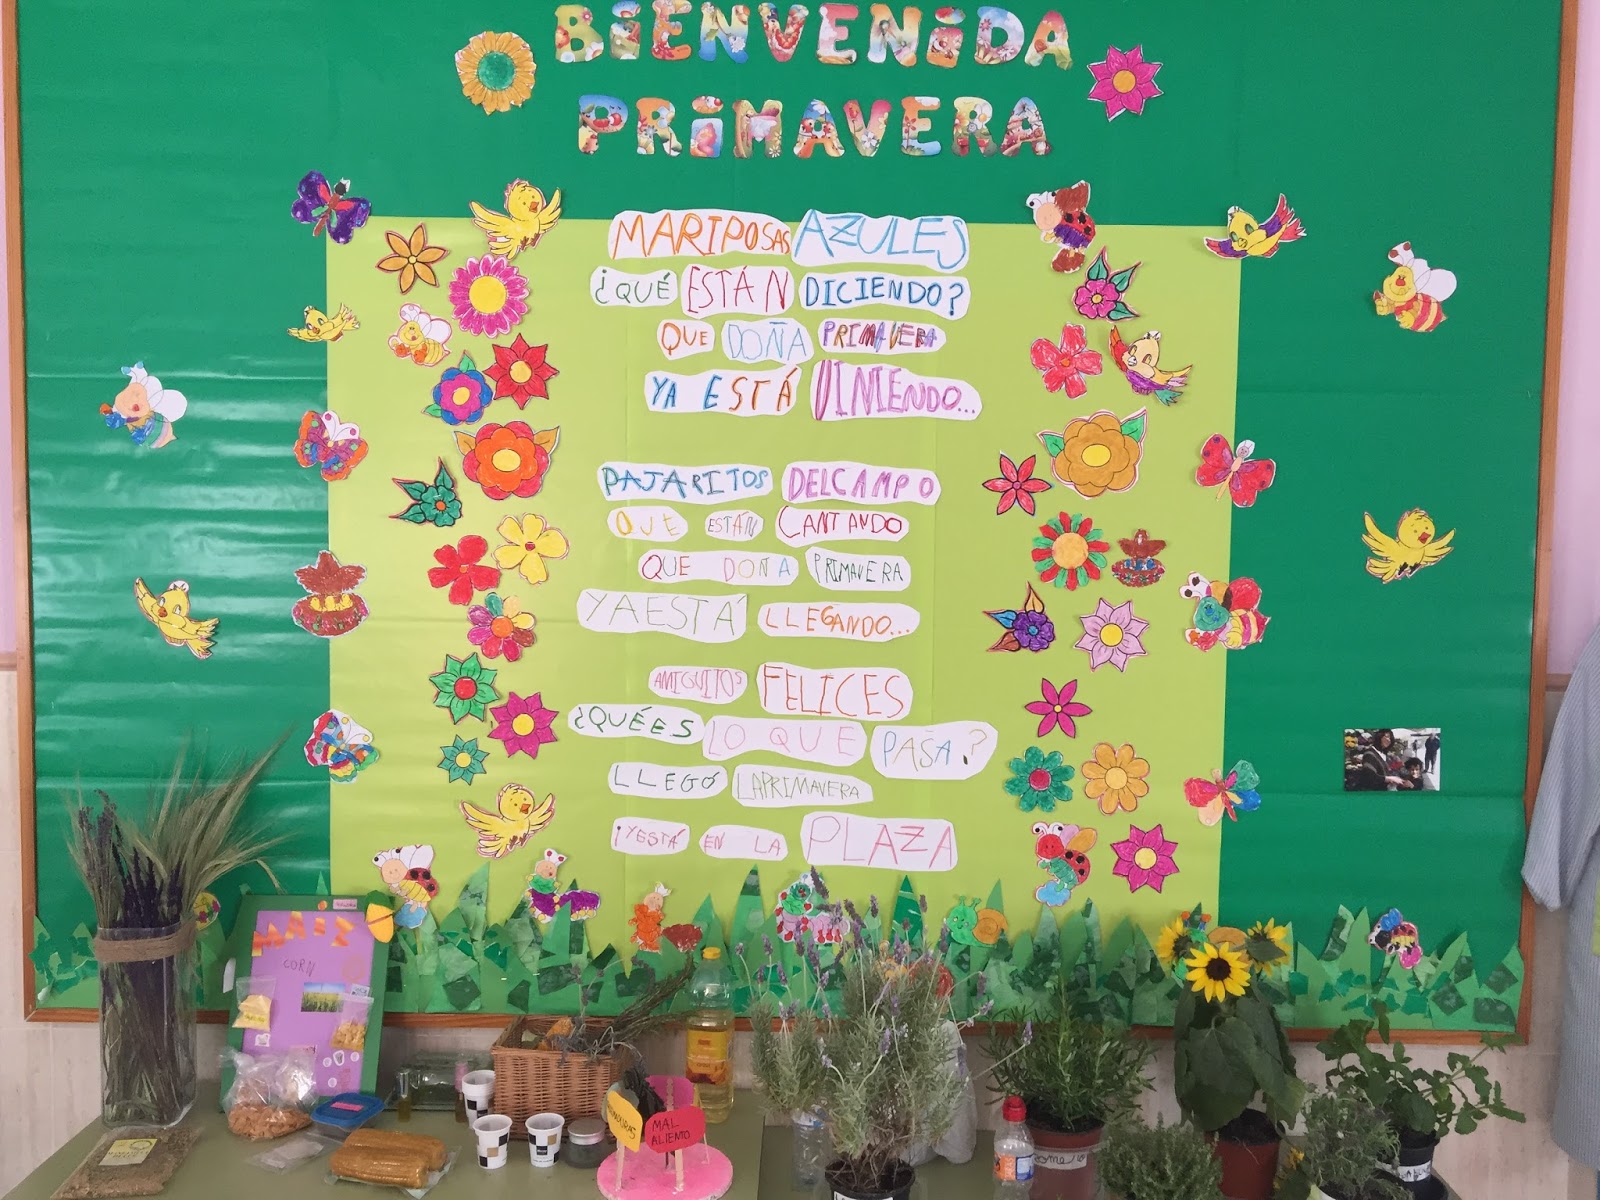 BIENVENIDA
PRIMAVERA
MARIPOSAS AZULES
¿QUÉ ESTÁN DICIENDO?
QUE DOÑA PRIMAVERA
YA ESTÁ VINIENDO...
PAJARITOS DEL CAMPO
QUE ESTÁN CANTANDO
QUE DOÑA PRIMAVERA
YA ESTÁ LLEGANDO...
AMIGUITOS FELICES
¿QUÉ ES LO QUE PASA?
LLEGÓ LA PRIMAVERA
¡Y ESTÁ EN LA PLAZA
MAIZ
CORN
MAL
ALIENTO